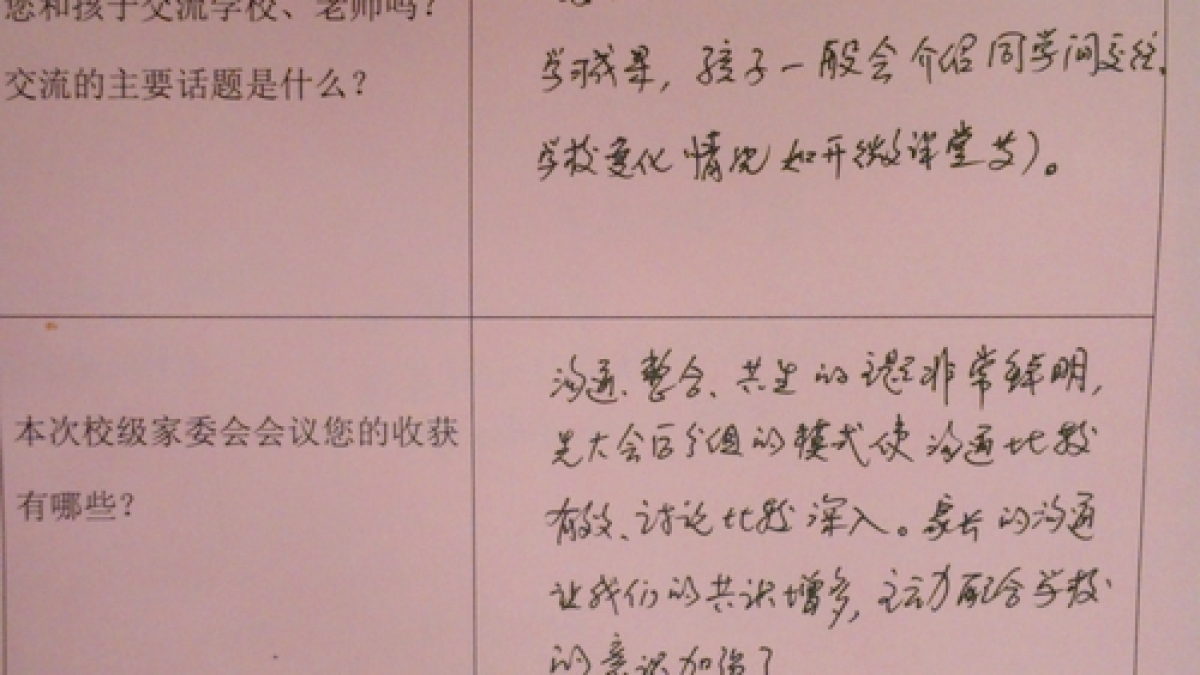 您和孩子交流学校、老师吗？
交流的主要话题是什么？
学习成果，孩子一般会介绍同学间交往、
学校变化情况如开微课堂等）。
本次校级家委会会议您的收获
有哪些？
沟通、整合、共生的主题非常鲜明，
先大会后分组的模式使沟通比较
有效、讨论比较深入。家长的沟通
让我们的共识增多，主动配合学校
的意识加强了